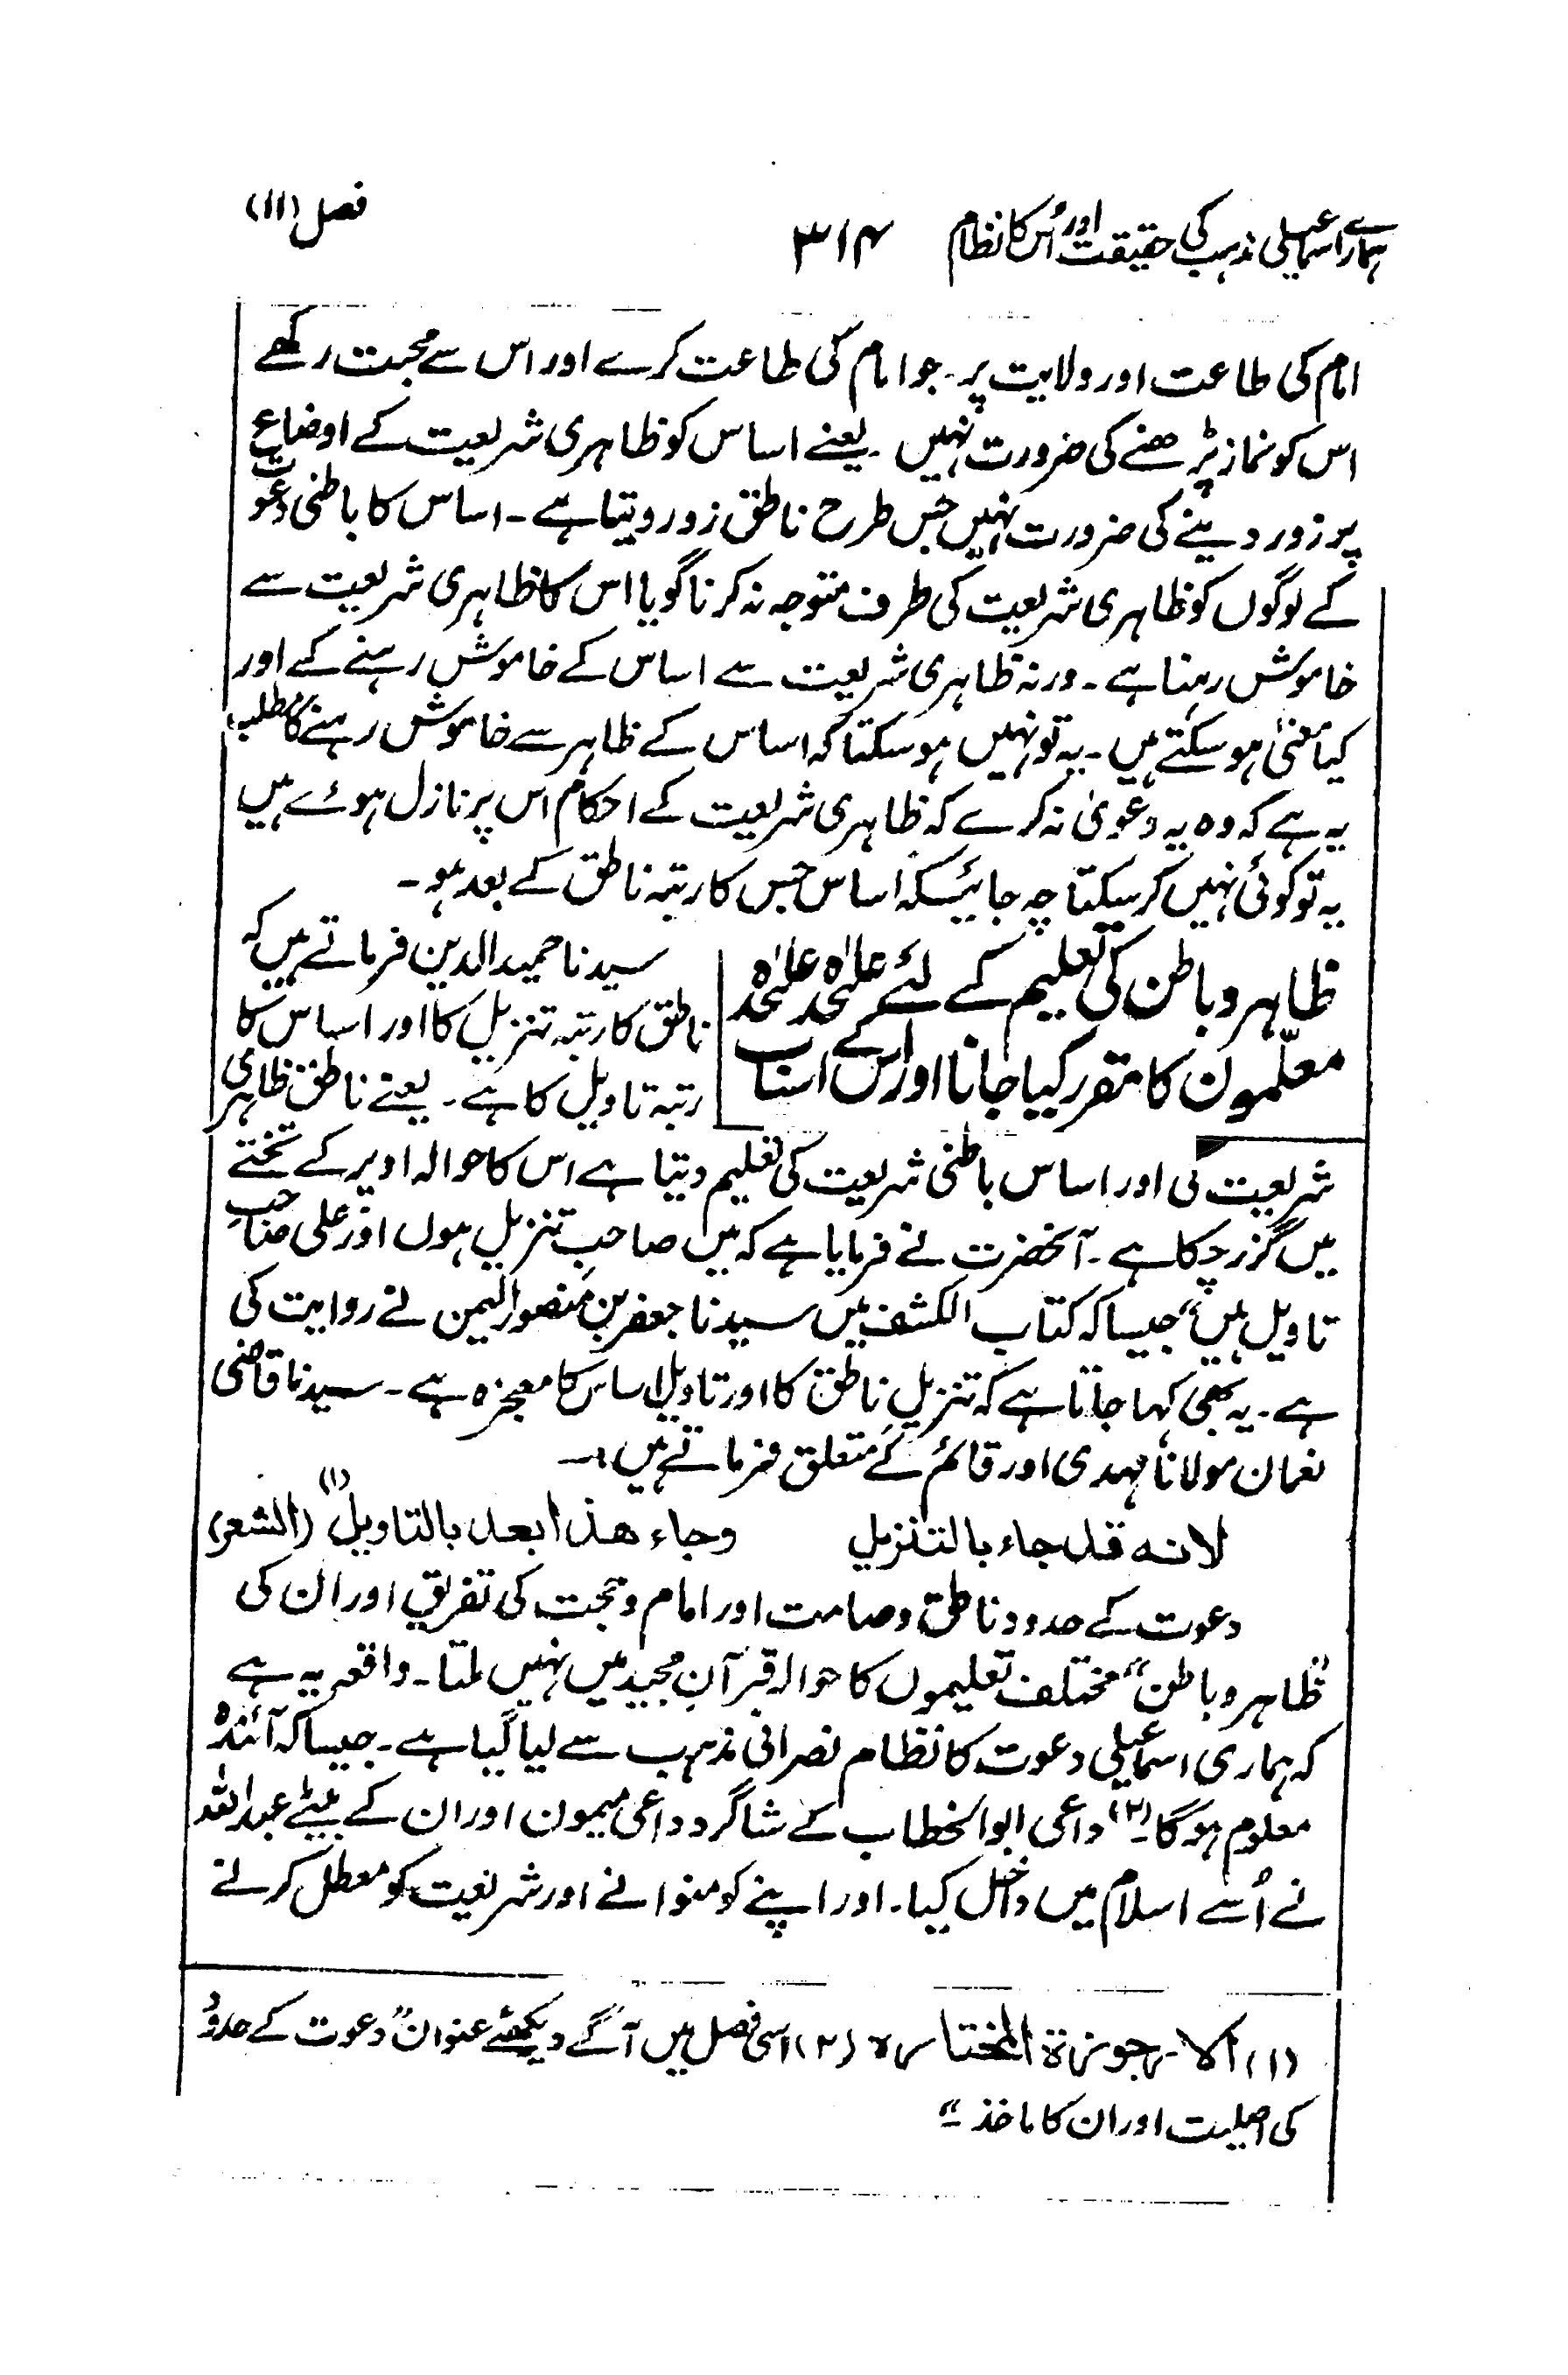 ہمارے اسماعیلی مذہب کی حقیقت اور اُس کا نظام ۳۱۴ فصل (۱۱)
امام کی طاعت اور ولایت پر۔ جو امام کی طاعت کرے اور اس سے محبت رکھے
اس کو نماز پڑھنے کی ضرورت نہیں۔ یعنے اساس کو ظاہری شریعت کے اوضاع
پر زور دینے کی ضرورت نہیں جس طرح ناطق زور دیتا ہے۔ اساس کا باطنی دعوت
کے لوگوں کو ظاہری شریعت کی طرف متوجہ نہ کرنا گویا اس کا ظاہری شریعت سے
خاموش رہنا ہے۔ ورنہ ظاہری شریعت سے اساس کے خاموش رہنے کے اور
کیا معنیٰ ہو سکتے ہیں۔ یہ تو نہیں ہو سکتا کہ اساس کے ظاہر سے خاموش رہنے کا مطلب
یہ ہے کہ وہ یہ دعویٰ نہ کرے کہ ظاہری شریعت کے احکام اس پر نازل ہوئے ہیں
یہ تو کوئی نہیں کر سکتا چہ جائیکہ اساس جس کا رتبہ ناطق کے بعد ہو۔
ظاہر و باطن کی تعلیم کے لئے علیٰحدہ علیٰحدہ
معلّموں کا مقرر کیا جانا اور اس کے اسباب
سیدنا حمید الدین فرماتے ہیں کہ
ناطق کا رتبہ تنزیل کا اور اساس کا
رتبہ تاویل کا ہے۔ یعنے ناطق ظاہری
شریعت کی اور اساس باطنی شریعت کی تعلیم دیتا ہے اس کا حوالہ اوپر کے تختے
میں گزر چکا ہے۔ آنحضرت نے فرمایا ہے کہ میں صاحبِ تنزیل ہوں اور علی صاحبِ
تاویل ہیں" جیسا کہ کتاب الکشف میں سیدنا جعفر بن منصور الیمن نے روایت کی
ہے۔ یہ بھی کہا جاتا ہے کہ تنزیل ناطق کا اور تاویل اساس کا معجزہ ہے۔ سیدنا قاضی
نعمان مولانا مہدی اور قائم کے متعلق فرماتے ہیں:۔
لانه قد جاء بالتنزيل وجاء هذا بعد بالتاويل (۱) (الشعر)
دعوت کے حدود ناطق و صامت اور امام و حجت کی تفریق اور ان کی
"ظاہر و باطن" مختلف تعلیموں کا حوالہ قرآن مجید میں نہیں ملتا۔ واقعہ یہ ہے
کہ ہماری اسماعیلی دعوت کا نظام نصرانی مذہب سے لیا گیا ہے۔ جیسا کہ آئندہ
معلوم ہوگا۔(۲) داعی ابو الخطاب کے شاگرد داعی میمون اور ان کے بیٹے عبد اللہ
نے اُسے اسلام میں داخل کیا۔ اور اپنے کو منوانے اور شریعت کو معطل کرنے
(۱) الارجوزة المختارة (۲) اسی فصل میں آگے دیکھئے عنوان "دعوت کے حدود
کی اصلیت اور ان کا ماخذ"